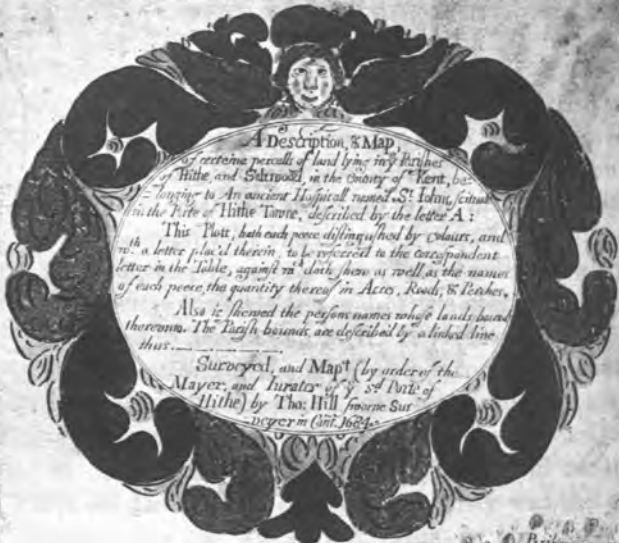 A Description, & Map,
of certeine percells of land lying in yͤ Parishes
of Hithe, and Saltwood, in the County of Kent, be-
= longing to An ancient Hospitall named Sᵗ. Iohns, scituat
in the Porte of Hithe Towne, described by the letter A:
This Plott, hath each peece distinguished by colours, and
wᵗʰ a letter plac'd therein, to be referred to the correspondent
letter in the Table, against wᶜʰ doth shew as well as the names
of each peece, the quantity thereof in Acres, Roods, & Perches,
Also is shewed the persons names whose lands bound
thereunto. The Parish bounds are described by a linked line
thus.
Surveyed, and Mapᵗ (by order of the
Mayer, and Iurates of yͤ sᵈ Porte of
Hithe) by Tho: Hill sworne Sur
= veyer in Cant. 1684.